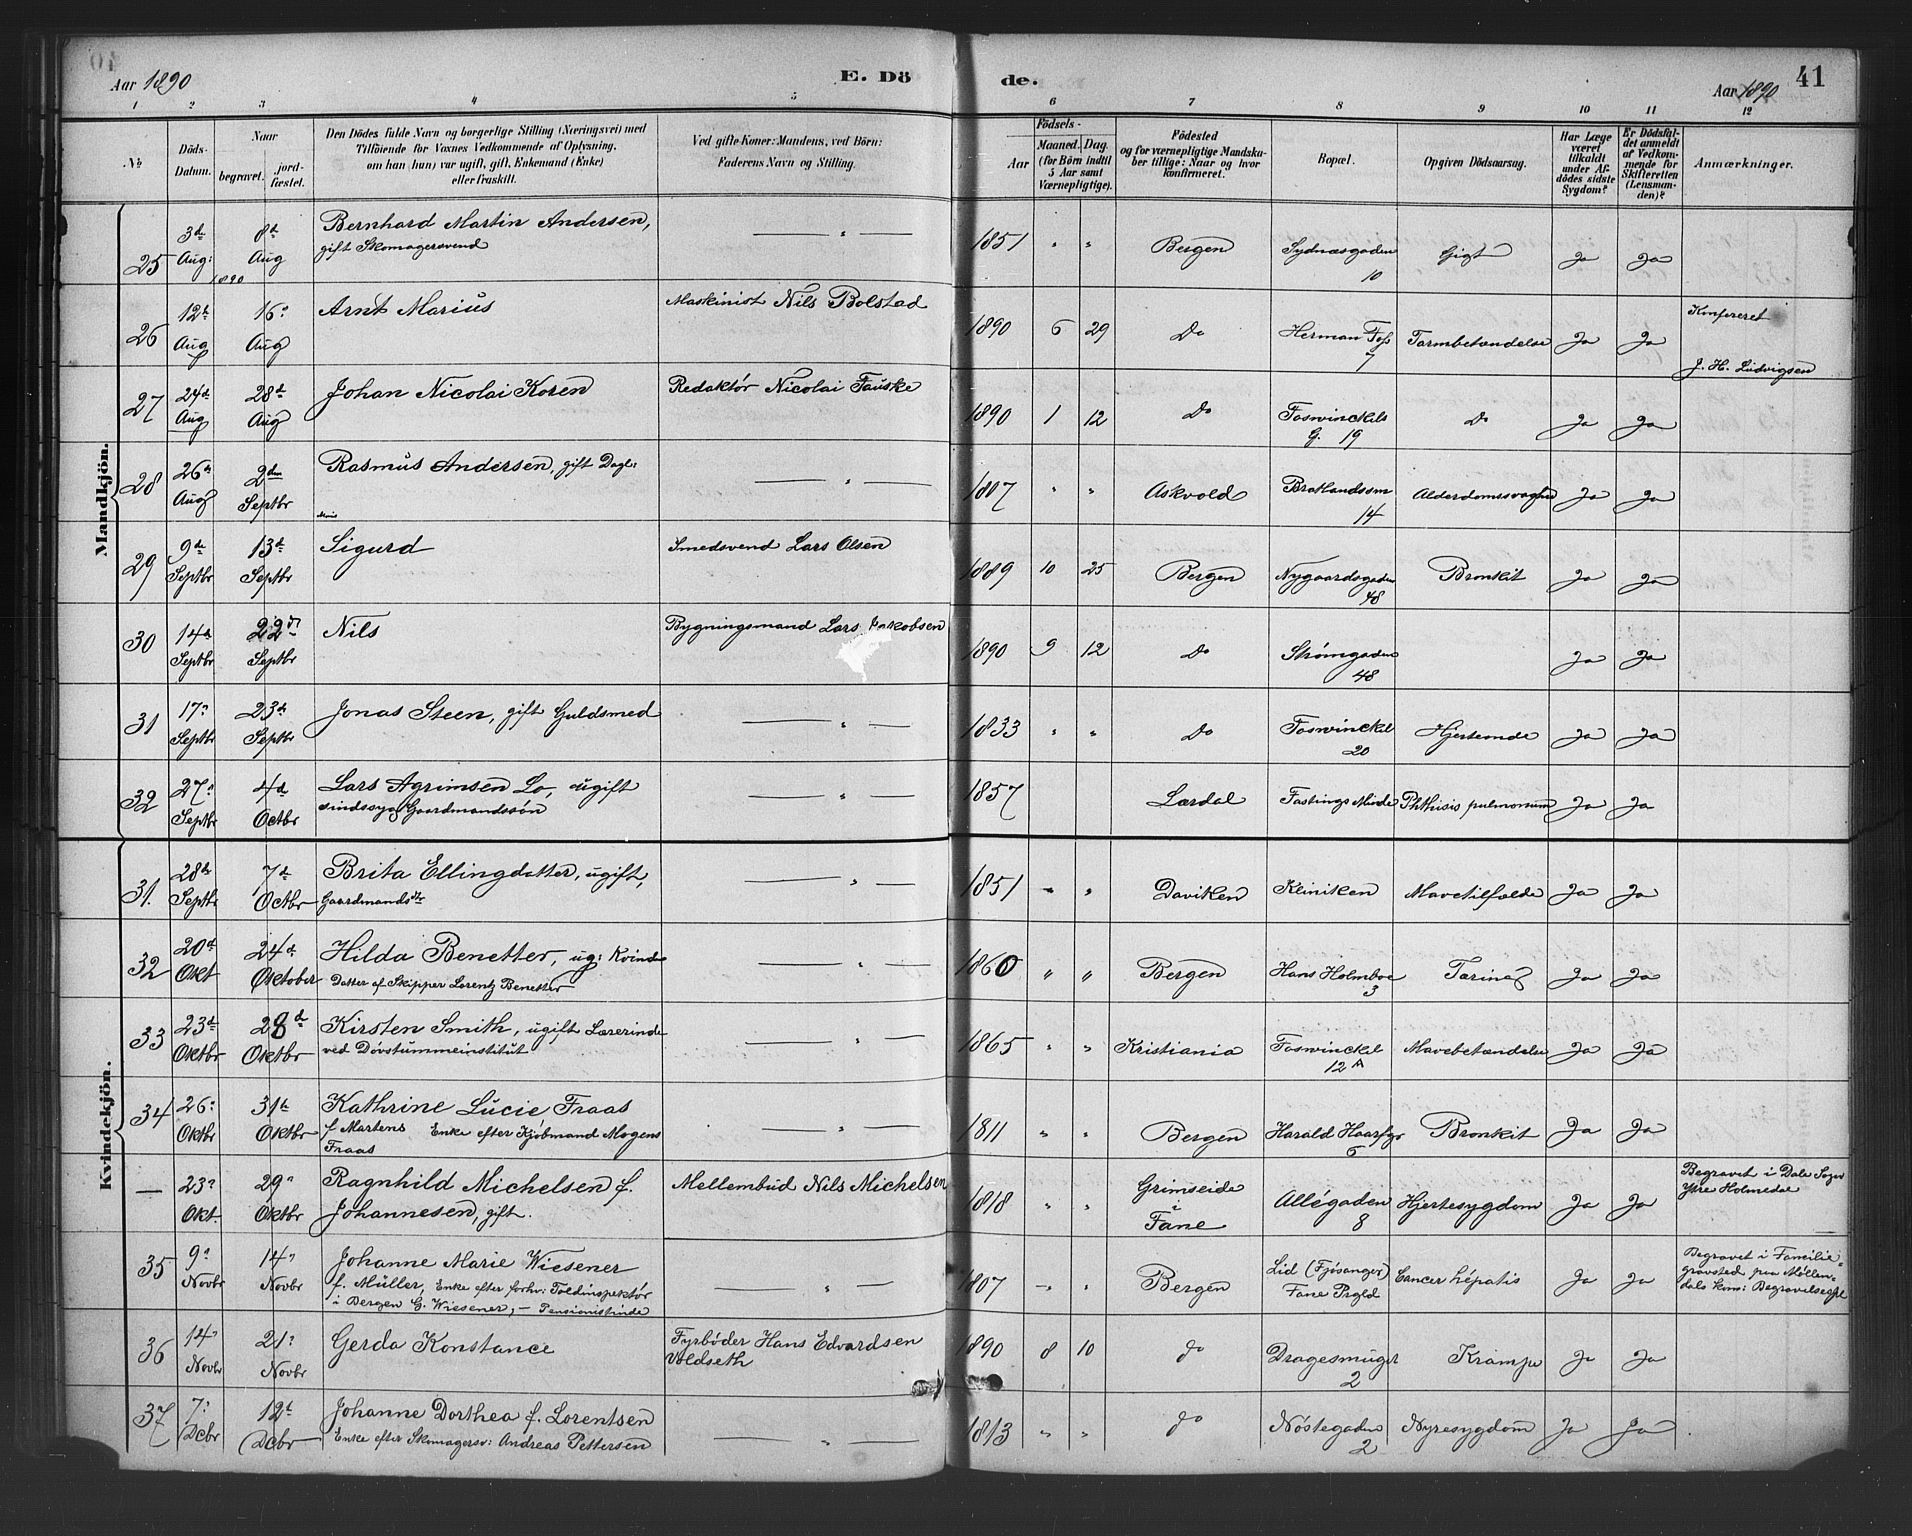 Aar 1890
E. Dö
de.
Aar 1890
41
1 2 3 4 5 6 7 8 9 10 11 12
No
Döds-Datum.
Naar
begravet.
jord-fæstet.
Den Dödes fulde Navn og borgerlige Stilling (Næringsvei) med
Tilföiende for Voxnes Vedkommende af Oplysning,
om han (hun) var ugift, gift, Enkemand (Enke)
eller fraskilt.
Ved gifte Koner: Mandens, ved Börn:
Faderens Navn og Stilling.
Födsels-
Aar
Maaned. Dag.
(for Börn indtil
5 Aar samt
Værnepligtige).
Födested
og for værnepligtige Mandska-
ber tillige: Naar og hvor
konfirmeret.
Bopæl.
Opgiven Dödsaarsag.
Har Læge
været
tilkaldt
under Af-
dödes sidste
Sygdom?
Er Dödsfal-
det anmeldt
af Vedkom-
mende for
Skifteretten
(Lensman-
den)?
Anmærkninger.
Mandkjön.
25 3de Aug: 1890 8de Aug Bernhard Martin Andersen,
gift Skomagersvend — " — 1851 " " Bergen Sydnæsgaden
10 Gigt Ja Ja
26 12te Aug 16" Aug Arnt Marius Maskinist Nils Bolstad 1890 6 29 Do Herman Foss
7 Tarmbetændelse Ja Ja Konfereret
J. H. Ludvigsen
27 24de Aug 28de Aug Johan Nicolai Koren Redaktør Nicolai Fauske 1890 1 12 Do Foswinckels
G. 19 Do Ja Ja
28 26de Aug 2den Septbr Rasmus Andersen, gift Dagl: — " — 1807 " " Askvold Bratlandssm
14 Alderdomssvaghed Ja Ja
29 9de Septbr 13de Septbr Sigurd Smedsvend Lars Olsen 1889 10 25 Bergen Nygaardsgaden
48 Bronkit Ja Ja
30 14de Septbr 22de Septbr Nils Bygningsmand Lars Jakobsen 1890 9 12 Do Strømgaden
48 Ja Ja
31 17" Septbr 23de Septbr Jonas Steen, gift Guldsmed — " — 1833 " " Do Foswinckel
20 Hjerteonde Ja Ja
32 27" Septbr 4de Octbr Lars Agrimsen Lo, ugift
sindssyg Gaardmandssøn — " — 1857 Lærdal Fastings Minde Phthisis pulmonum Ja Ja
Kvindekjön.
31. 28de Septbr 7de Octbr Brita Ellingdatter, ugift,
Gaardmandsdtr — " — 1851 " " Daviken Kliniken Mavetilfælde Ja Ja
32 20de Okt 24de Oktober Hilda Benetter, ug: Kvinde
Datter af Skipper Lorentz Benetter — " — 1860 " " Bergen Hans Holmboe
3 Ja Ja
33 23de Oktbr 28de Oktbr Kirsten Smith, ugift Lærerinde
ved Døvstummeinstitut — " — 1865 " " Kristiania Foswinckel
12 A Mavebetændelse Ja Ja
34 26" Oktbr 31te Oktbr Kathrine Lucie Fraas
f. Martens Enke efter Kjøbmand Mogens
Fraas — " — 1811 " " Bergen Harald Haarfgr
5 Bronkit Ja Ja
— 23" Okt. 29" Oktbr Ragnhild Michelsen f.
Johannesen, gift. Mellembud Nils Michelsen 1818 " " Grimseide
i
Fane Allégaden
8 Hjertesygdom Ja Ja Begravet i Dale Sogn
Ytre Holmedal
35 9" Novbr 14" Novbr Johanne Marie Wiesener
f. Müller, Enke efter forhv: Toldinspektør
i Bergen G. Wiesener, — Pensionistinde — " — 1807 — " Bergen Lid (Fjøsanger)
Fane Prgld Cancer hépatis Ja Ja Begravet i Familie-
gravsted paa Møllen-
dals kom: Begravelsespl
36 14" Novbr 21" Novbr Gerda Konstance Fyrbøder Hans Edvardsen
Voldseth 1890 8 10 do Dragesmuget
2 Krampe Ja Ja
37 7" Dcbr 12te Dcbr Johanne Dorthea f. Lorentsen
Enke efter Skomagersv: Andreas Pettersen — " — 1813 " " do Nøstegaden
2 Nyresygdom Ja Ja